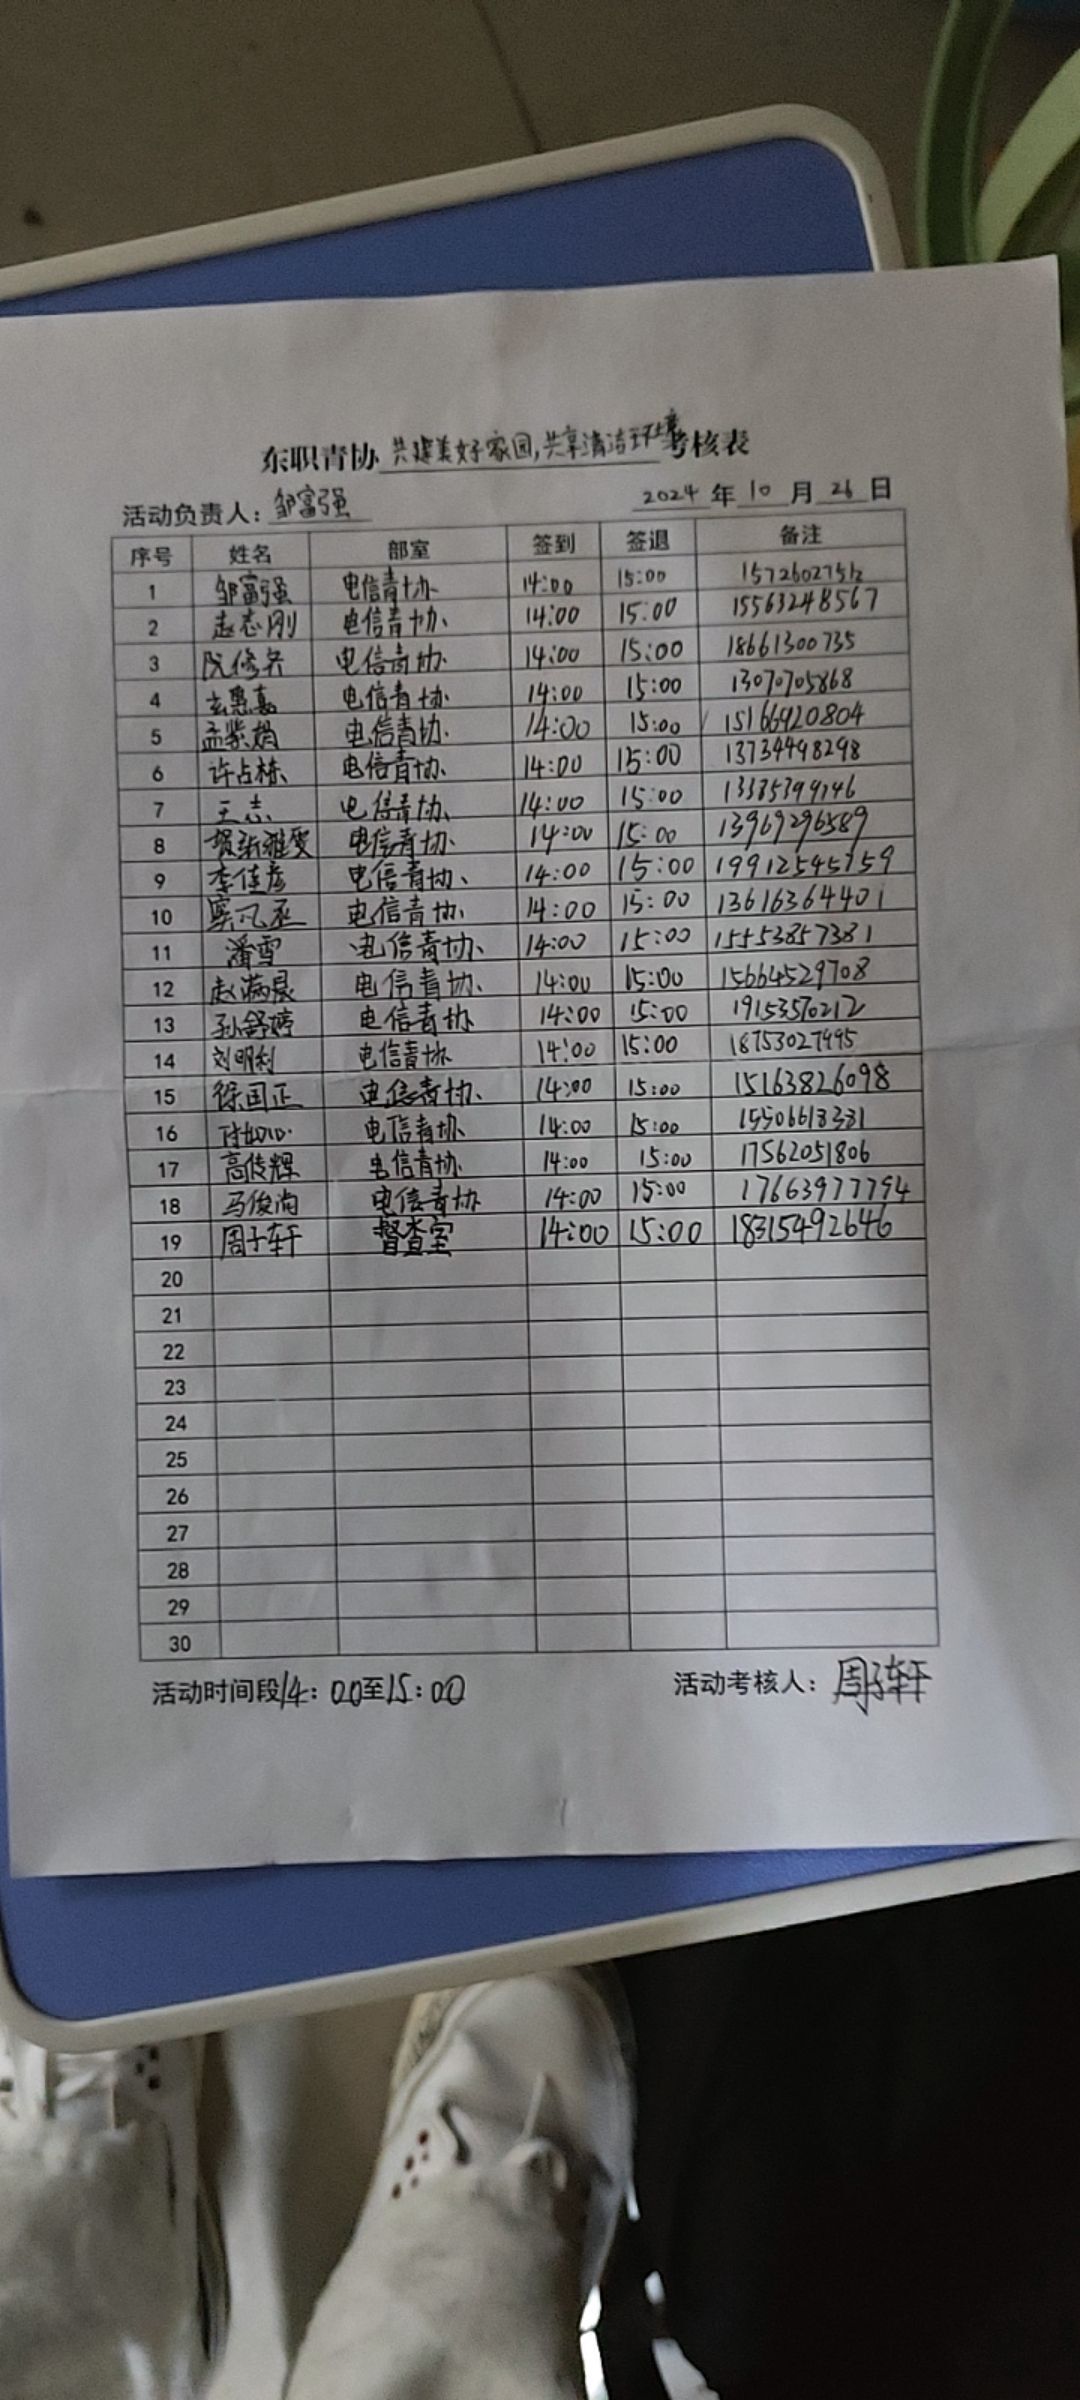 东职青协 共建美好家园,共享清洁环境 考核表
活动负责人: 邹富强 2024 年 10 月 26 日
序号 姓名 部室 签到 签退 备注
1 邹富强 电信青协 14:00 15:00 15726027512
2 赵志刚 电信青协 14:00 15:00 15563248567
3 电信青协 14:00 15:00 18661300735
4 电信青协 14:00 15:00 13070705868
5 孟紫娟 电信青协 14:00 15:00 15166920804
6 许占栋 电信青协 14:00 15:00 13734498298
7 王志 电信青协 14:00 15:00
8 电信青协 14:00 15:00 13969296589
9 李佳彦 电信青协 14:00 15:00 19912545759
10 窦凡丞 电信青协 14:00 15:00 13616364401
11 潘雪 电信青协 14:00 15:00 15553857381
12 赵满晨 电信青协 14:00 15:00 15664529708
13 孙舒婷 电信青协 14:00 15:00 19153570212
14 刘明利 电信青协 14:00 15:00 18753027495
15 徐国正 电信青协 14:00 15:00 15163826098
16 付如心 电信青协 14:00 15:00 15506618381
17 高传辉 电信青协 14:00 15:00 17562051806
18 马俊尚 电信青协 14:00 15:00 17663977794
19 周子轩 督查室 14:00 15:00 18315492646
20
21
22
23
24
25
26
27
28
29
30
活动时间段14:00至15:00 活动考核人: 周子轩